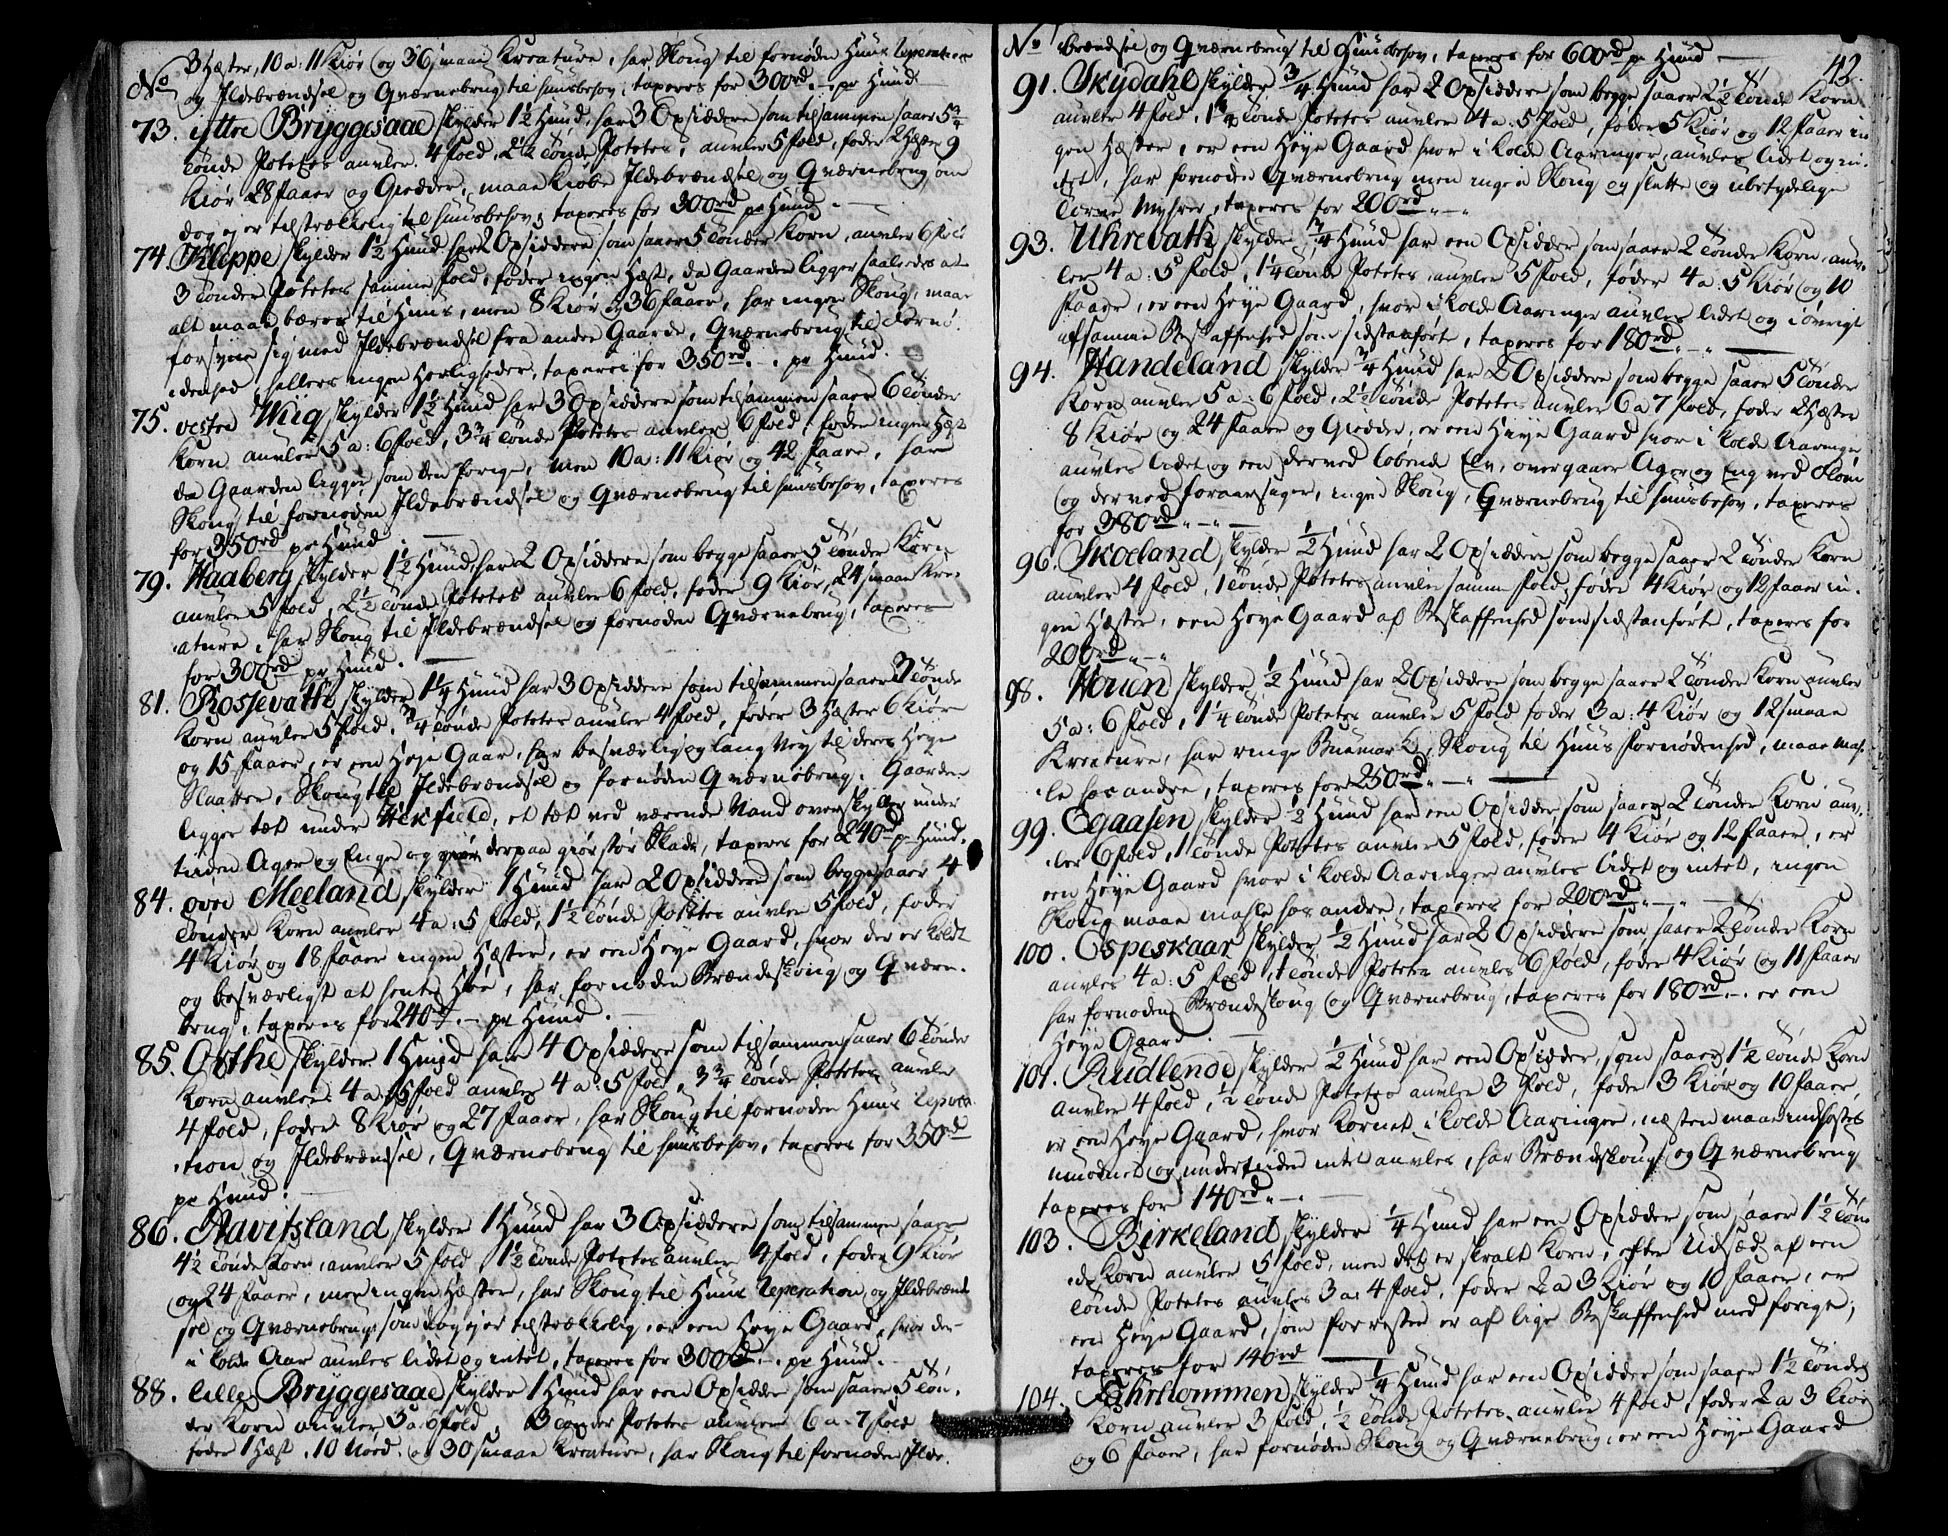 3 Hæster, 10 a: 11 Kiør og 36 smaau Kreature, har Skoug til fornøden Huus Reperation
No og Ildebrændsel og Qværnebrug til huusbehov, taxeres for 300rd. pr Huud.
73. ÿttre Brÿggesaae skylder 1½ Huud, har 3 Opsiddere som tilsammen saaer 5¾
tønde Potetes auvler 4 fold, 2½ tønde Potetes, auvler 5 fold, føder 2 Hæster 9
Kiør 28 Faaer og Gieder, maae kiøbe Ildebrændsel og Qværnebrug, om
dog ej er tilstrækkelig til huusbehov, taxeres for 300rd pr Huud.
74. Kleppe skylder 1½ Huud har 2 Opsiddere som saaer 5 tønder Korn, auvler 6 fold
3 tønder Potetes samme fold, føder ingen Hæst, da Gaarden ligger saaledes at
alt maae bæres til Huus, men 8 Kiør og 36 Faaer, har ingen Skoug, maae
forsyne sig med Ildebrændsel fra andre Gaarde, Qværnebrug til Fornø-
denhed, ellers ingen Herligheder, taxeres for 350rd. pr Huud.
75. vestre Wiig skylder 1½ Huud har 3 Opsiddere som tilsammen saaer 6 tønder
Korn auvler 5 a: 6 fold, 3¾ tønde Potetes auvler 6 fold, føder ingen Hæst
da Gaarden ligger som den forrige, men 10 a: 11 Kiør og 42 Faaer, har
Skoug til fornøden Ildebrændsel og Qværnebrug til huusbehov, taxeres
for 350rd pr Huud.
79. Haaberg skylder 1½ Huud, har 2 Opsiddere som begge saaer 5 tønder Korn
auvler 5 fold, 2½ tønde Potetes auvler 6 fold, føder 9 Kiør, 24 smaae Kre-
ature, har Skoug til Ildebrændsel og fornøden Qværnebrug, taxeres
for 300rd pr Huud.
81. Rossevath skylder 1¼ Huud har 3 Opsiddere som tilsammen saaer 3 tønde
Korn auvler 5 fold, ¾ tønde Potetes auvler 4 fold, føder 3 Hæster 6 Kiør
og 15 Faaer, er een Høye Gaar, har besværlig og lang Vey til deres Høye
Slaatter, Skoug til Ildebrændsel og fornøden Qværnebrug. Gaarden
ligger tæt under Hekfield, et tæt ved værende Vand overskyller under
tiiden Ager og Enge og derpaa giør stor Skade, taxeres for 240rd pr Huud.
84. øvre Meeland skylder 1 Huud har 2 Opsiddere som begge saaer 4
tønder Korn auvler 4 a: 5 fold, 1½ tønde Potetes auvler 5 fold, føder
4 Kiør og 18 Faaer ingen Hæster, er een Høye Gaard, hvor der er koldt
og besværligt at hente Høe, har fornøden Brændeskoug og Qværne-
brug, taxeres for 240rd. pr Huud.
85. Osthe skylder 1 Huud har 4 Opsiddere som tilsammen saaer 6 tønder
Korn auvler 4 a 5 fold auvler 4 a: 5 fold, 3¾ tønde Potetes auvler
4 fold, føder 8 Kiør og 27 Faaer, har Skoug til fornøden Huus Repera-
tion og Ildebrændsel, Qværnebrug til huusbehov, taxeres for 350rd
pr Huud.
86. Ravitsland skylder 1 Huud har 3 Opsiddere som tilsammen saaer
4½ tønde Korn, auvler 5 fold 1½ tønde Potetes auvler 4 fold, føder 9 Kiør
og 24 Faaer, men ingen Hæster, har Skoug til Huus Reperation og Ildebrænd
sel og Qværnebrug, som dog ej er tilstrækkelig, er een Høye Gaard, hvor der
i kolde Aar auvles lidet og intet, taxeres for 300rd. pr Huud.
88. lille Brÿggesaae skylder 1 Huud har een Opsidder som saaer 5 tøn-
der Korn auvler 5 a 6 fold, 3 tønder Potetes auvler 6 a 7 fold
føder 1 Hæst, 10 Nød. og 30 smaae Kreature, har Skoug til fornøden Ilde-
42.
No brændsel og Qværnebrug til Huusbehov, taxeres for 600rd pr Huud
91. Skÿdahl skylder ¾ Huud har 2 Opsiddere som begge saaer 2½ tønde Korn
auvler 4 fold, 1¾ tønde Potetes auvler 4 a: 5 fold, føder 5 Kiør og 12 Faaer in-
gen Hæster, er een Høye Gaard hvor i kolde Aaringer auvles lidet og in-
tet, har fornøden Qværnebrug men ingen Skoug og slette og ubetydelige
Torve Myhrer, taxeres for 200rd
93. Uhrevath skylder ¾ Huud har een Opsidder som saaer 2 tønder Korn auv-
ler 4 a: 5 fold, 1¼ tønde Potetes auvler 5 fold, føder 4 a: 5 Kiør og 10
Faaer, er een Høye Gaard, hvor i kolde Aaringer auvles lidet og i øvrigt
af samme Beskaffenhed som sidstanført, taxeres for 180rd
94. Handeland skylder ¾ Huud har 2 Opsiddere som begge saaer 5 tønder
Korn auvler 5 a: 6 fold, 2½ tønde Potetes auvler 6 a 7 fold, føder 2 Hæster
8 Kiør og 24 Faaer og Giedder, er een Høye Gaard hvor i kolde Aaringer
auvles lidet og een derved løbende Elv, overgaaer Ager og Eng ved Flom
og derved foraarsager, ingen Skoug, Qværnebrug til huusbehov, taxeres
for 380rd
96. Skoeland skylder ½ Huud har 2 Opsiddere som begge saaer 2 tønder Korn
auvler 4 fold, 1 tønde Potetes auvler samme fold, føder 4 Kiør og 12 Faaer in-
gen Hæster, een Høye Gaard af Beskaffenhed som sidstanførte, taxeres for
200rd
98. Houen skylder ½ Huud har 2 Opsiddere som begge saaer 2 tønder Korn auvler
5 a: 6 fold, 1¼ tønde Potetes auvler 5 fold føder 3 a: 4 Kiør og 12 smaae
Kreature, har ringe Buemark, Skoug til Huus Fornødenhed, maae mah-
le hos andre, taxeres for 250rd
99. Egaasen skylder ½ Huud har een Opsidder, som saaer 2 tønder Korn auv-
ler 6 fold, 1 tønde Potetes auvler 5 fold, føder 4 Kiør og 12 Faaer, er
een Høye Gaard hvor i kolde Aaringer auvles lidet og intet, ingen
Skoug maae mahle hos andre, taxeres for 200rd
100. Espeskaar skylder ½ Huud har 2 Opsiddere som saaer 2 tønder Korn
auvles 4 a: 5 fold, 1 tønde Potetes auvles 6 fold, føder 4 Kiør og 11 Faaer
har fornøden Brændeskoug og Qværnebrug, taxeres for 180rd. er een
Høye Gaard.
101. Rudlende skylder ½ Huud har een Opsidder, som saaer 1½ tønde Korn
auvler 4 fold, ½ tønde Potetes auvler 3 fold, føder 3 Kiør og 10 Faaer,
er een Høye Gaard, hvor Kornet i kolde Aaringer, næsten maae indhøstes
umodnet og undertiiden intet auvles, har Brændskoug og Qværnebrug
taxeres for 140rd
103. Birkeland skylder ¼ Huud har een Opsidder som saaer 1½ tøn-
de Korn auvler 5 fold, men det er skralt Korn, efter Udsæd af een
tønde Potetes auvles 3 a: 4 fold, føder 2 a 3 Kiør og 10 Faaer, er
een Høye Gaard, som forresten er af lige Beskaffenhed med forige,
taxeres for 140rd
104. Ehrhommen skylder ¼ Huud har een Opsidder som saaer 1½ tønde
Korn auvler 3 fold, ½ tønde Potetes auvler 4 fold, føder 2 a 3 Kiør
og 6 Faaer, har fornøden Skoug og Qværnebrug, er een Høye Gaard